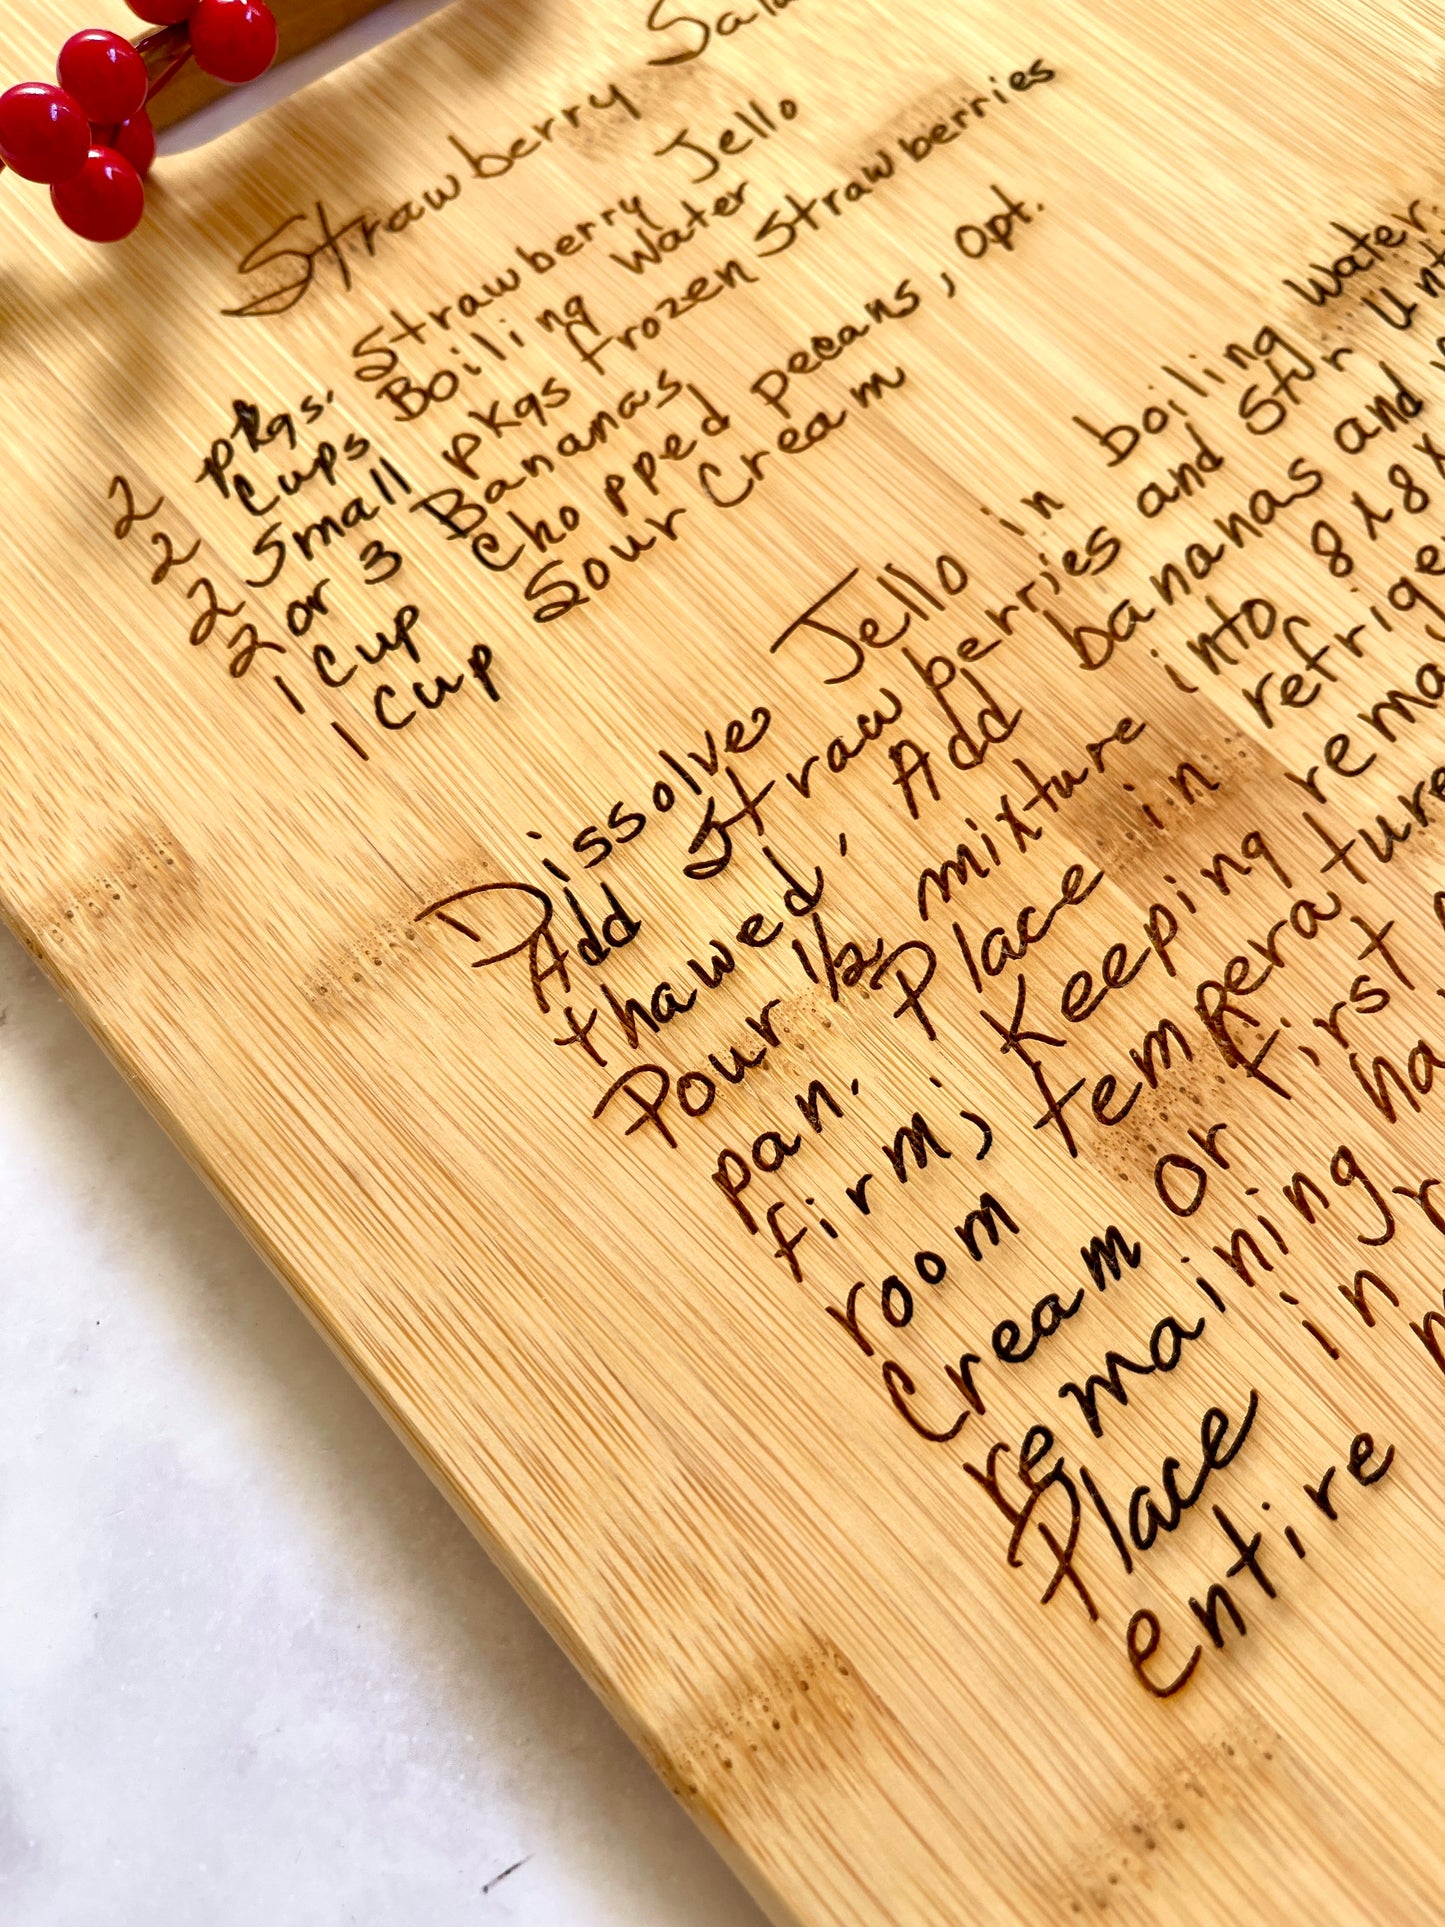 Strawberry
2 pkgs. Strawberry Jello
2 cups Boiling Water
2 small pkgs frozen Strawberries
2 or 3 Bananas
1 cup chopped pecans, opt.
1 cup Sour Cream
Dissolve Jello in boiling water.
Add strawberries and stir
thawed. Add bananas and
Pour 1/2 mixture into 8x8x
pan. Place in
firm; Keeping
room temperature
Cream or first
remaining
Place in
entire